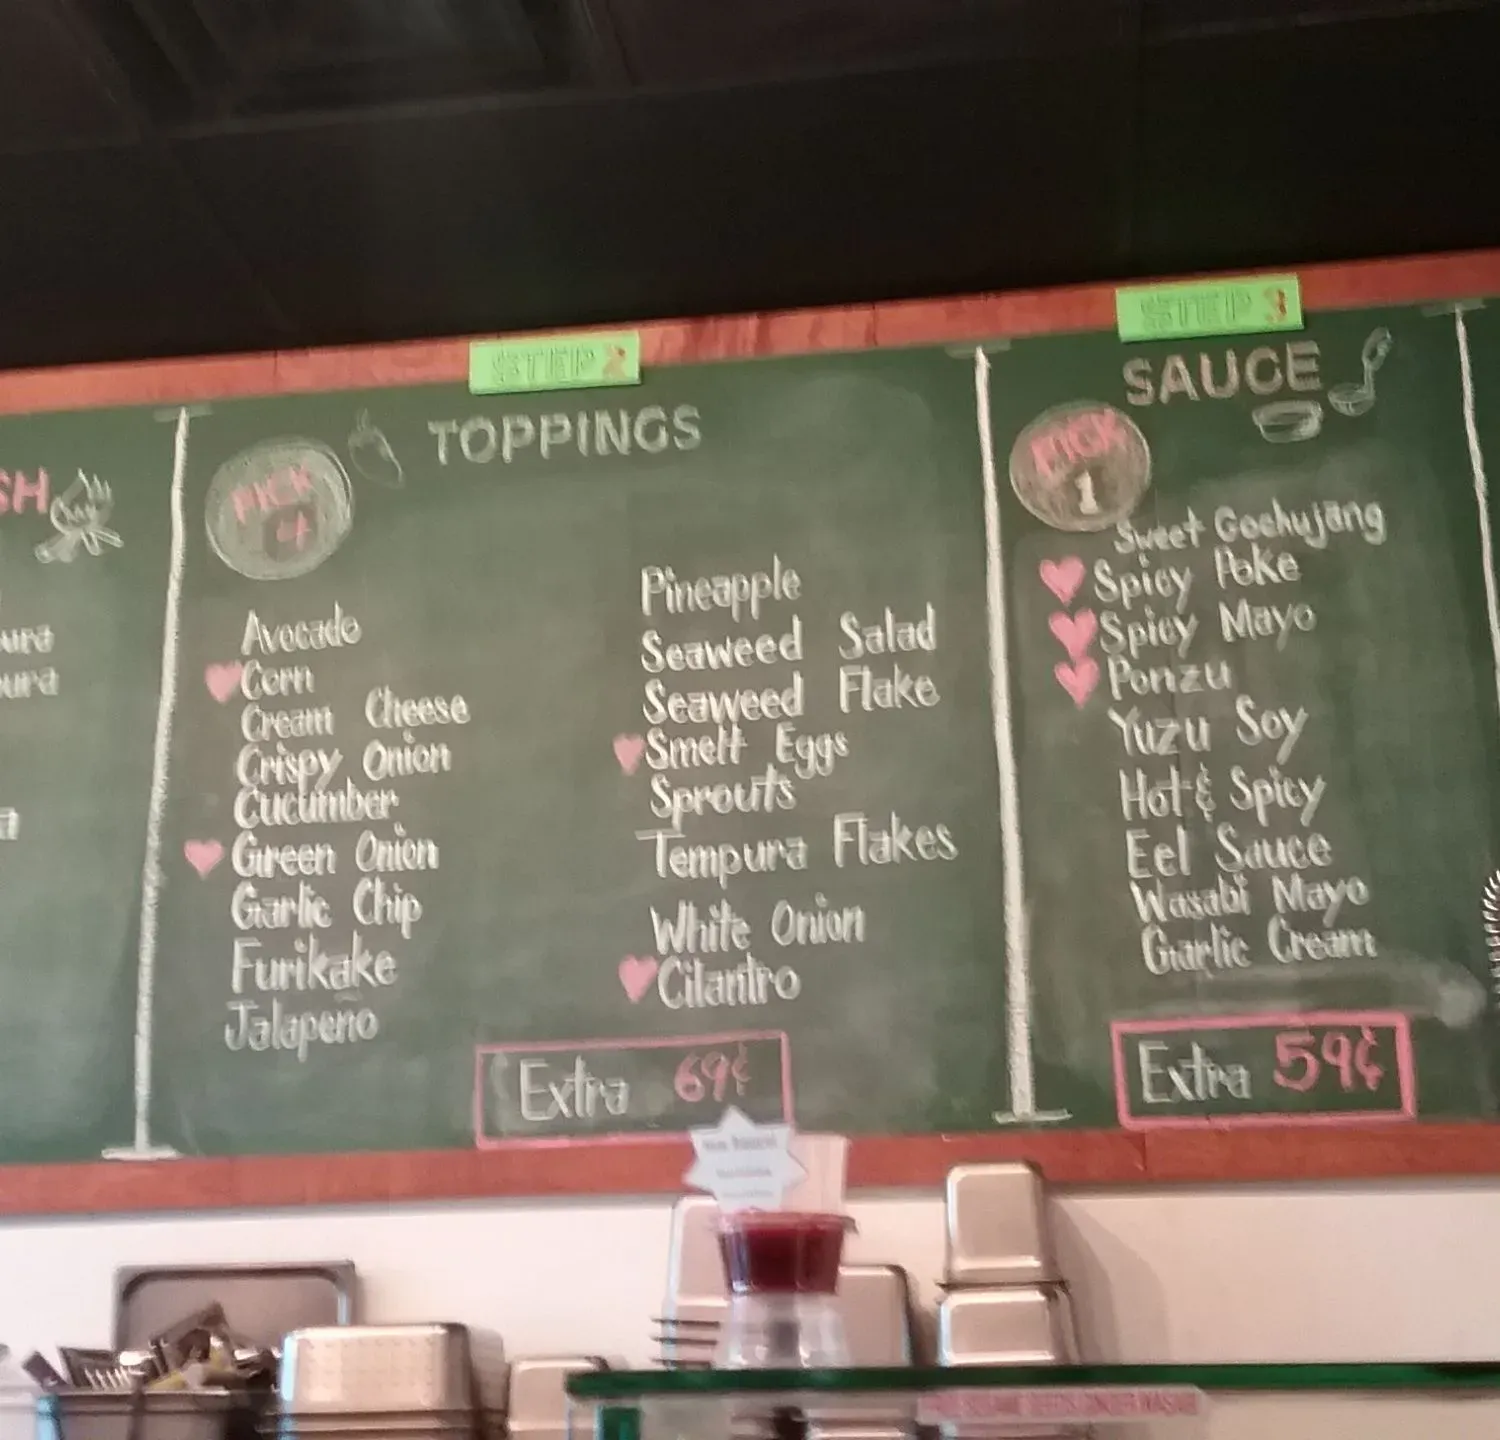 SH
STEP 2
TOPPINGS
PICK
4
Avocado
Corn
Cream Cheese
Crispy Onion
Cucumber
Green Onion
Garlic Chip
Furikake
Jalapeno
Pineapple
Seaweed Salad
Seaweed Flake
Smelt Eggs
Sprouts
Tempura Flakes
White Onion
Cilantro
Extra 69¢
STEP 3
SAUCE
PICK
1
Sweet Gochujang
Spicy Poke
Spicy Mayo
Ponzu
Yuzu Soy
Hot & Spicy
Eel Sauce
Wasabi Mayo
Garlic Cream
Extra 59¢